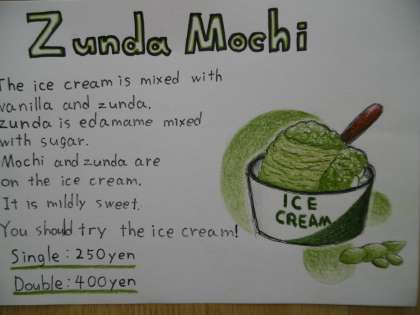 Zunda Mochi
The ice cream is mixed with
vanilla and zunda.
zunda is edamame mixed
with sugar.
Mochi and zunda are
on the ice cream.
It is mildly sweet.
You should try the ice cream!
Single: 250yen
Double: 400yen
ICE
CREAM